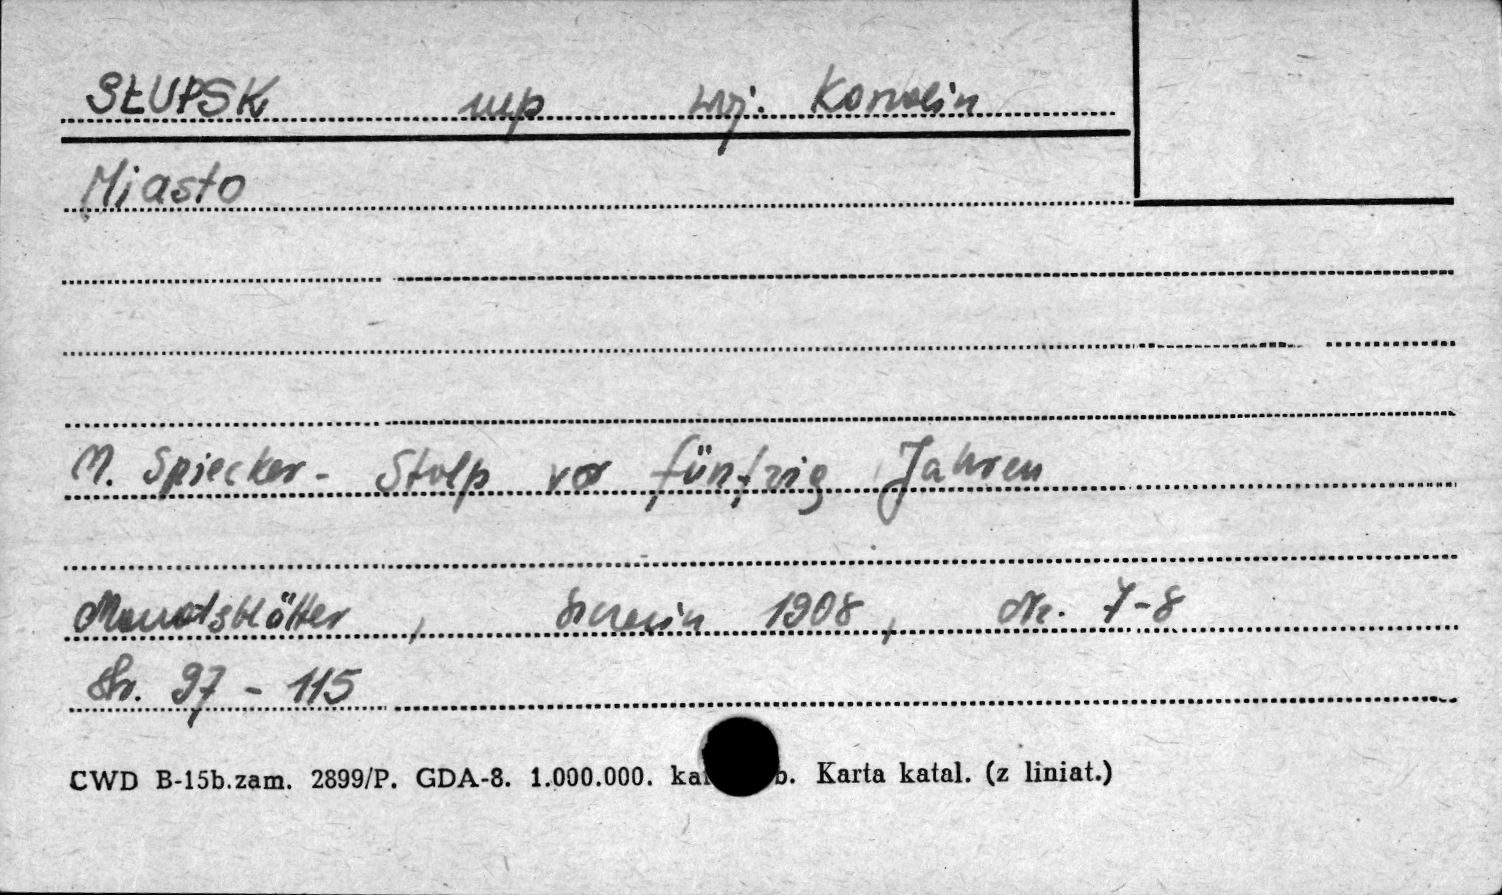 SŁUPSK mp woj. Koszalin
Miasto
M. Spiecker - Stolp vor fünfzig Jahren
Monatsblätter, Szczecin 1908, Nr. 7-8
Str. 97 - 115
CWD B-15b.zam. 2899/P. GDA-8. 1.000.000. Karta katal. (z liniat.)